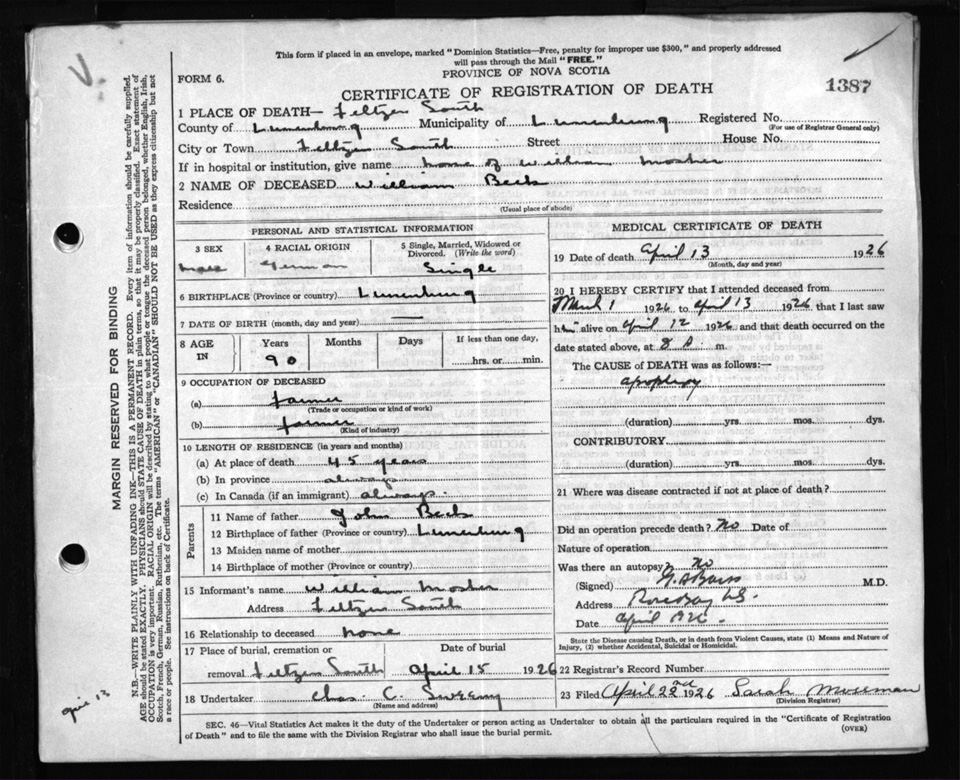 This form if placed in an envelope, marked "Dominion Statistics—Free, penalty for improper use $300," and properly addressed
will pass through the Mail "FREE."
PROVINCE OF NOVA SCOTIA
FORM 6.
CERTIFICATE OF REGISTRATION OF DEATH
1387
1 PLACE OF DEATH— Feltzen South
County of Lunenburg Municipality of Lunenburg Registered No.
(For use of Registrar General only)
City or Town Feltzen South Street House No.
If in hospital or institution, give name home of William Mosher
2 NAME OF DECEASED William Beck
Residence
(Usual place of abode)
PERSONAL AND STATISTICAL INFORMATION
3 SEX 4 RACIAL ORIGIN 5 Single, Married, Widowed or
Divorced. (Write the word)
male German Single
6 BIRTHPLACE (Province or country) Lunenburg
7 DATE OF BIRTH (month, day and year) —
8 AGE IN Years Months Days If less than one day,
90 hrs. or min.
9 OCCUPATION OF DECEASED
(a) farmer
(Trade or occupation or kind of work)
(b) farmer
(Kind of industry)
10 LENGTH OF RESIDENCE (in years and months)
(a) At place of death 45 years
(b) In province always
(c) In Canada (if an immigrant) always.
Parents
11 Name of father John Beck
12 Birthplace of father (Province or country) Lunenburg
13 Maiden name of mother
14 Birthplace of mother (Province or country)
15 Informant's name William Mosher
Address Feltzen South
16 Relationship to deceased none
17 Place of burial, cremation or Date of burial
removal Feltzen South April 15 1926
18 Undertaker Chas. C.
(Name and address)
MEDICAL CERTIFICATE OF DEATH
19 Date of death April 13 1926
(Month, day and year)
20 I HEREBY CERTIFY that I attended deceased from
March 1 1926 to April 13 1926 that I last saw
him alive on April 12 1926 and that death occurred on
date stated above, at 8 P. m.
The CAUSE of DEATH was as follows:—
apoplexy
(duration) yrs. mos. dys.
CONTRIBUTORY
(duration) yrs. mos. dys.
21 Where was disease contracted if not at place of death?
Did an operation precede death? No Date of
Nature of operation
Was there an autopsy? No
(Signed) M.D.
Address Rose Bay N.S.
Date April 1926
State the Disease causing Death, or in death from Violent Causes, state (1) Means and Nature of
Injury, (2) whether Accidental, Suicidal or Homicidal.
22 Registrar's Record Number
23 Filed April 22nd 1926 Sarah Mossman
(Division Registrar)
SEC. 46—Vital Statistics Act makes it the duty of the Undertaker or person acting as Undertaker to obtain all the particulars required in the "Certificate of Registration
of Death" and to file the same with the Division Registrar who shall issue the burial permit. (OVER)
MARGIN RESERVED FOR BINDING
N.B.—WRITE PLAINLY WITH UNFADING INK—THIS IS A PERMANENT RECORD. Every item of information should be carefully supplied.
AGE should be stated EXACTLY. PHYSICIANS should STATE CAUSE OF DEATH in plain terms, so that it may be properly classified. Exact statement of
OCCUPATION is very important. RACIAL ORIGIN will be described by stating to what people or tongue the deceased person belonged, whether English, Irish,
Scotch, French, German, Russian, Ruthenian, etc. The terms "AMERICAN" or "CANADIAN" SHOULD NOT BE USED as they express citizenship but not
a race or people. See instructions on back of Certificate.